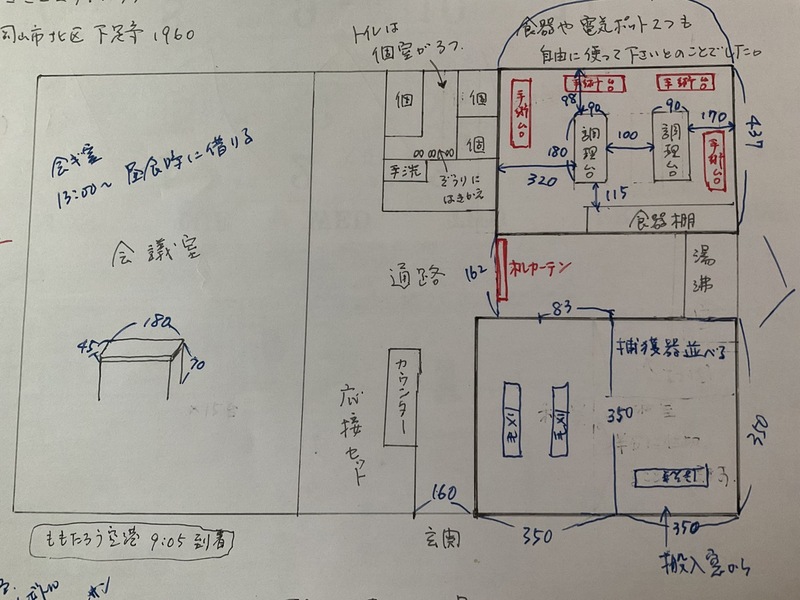 岡山市北区下足守1960
トイレは
個室が3つ。
食器や電気ポット2つも
自由に使って下さいとのことでした。
会議室
13:00〜 昼食時に借りる
会議室
180
45
70
ももたろう空港 9:05到着
個
個
個
手洗
ぞうりに
はきかえ
通路
応接セット
カウンター
160
玄関
手術台
手術台
手術台
手術台
98
90
90
調理台
調理台
180
100
170
437
320
115
食器棚
162
カーテン
湯沸
83
捕獲器並べる
350
350
350
350
搬入窓から